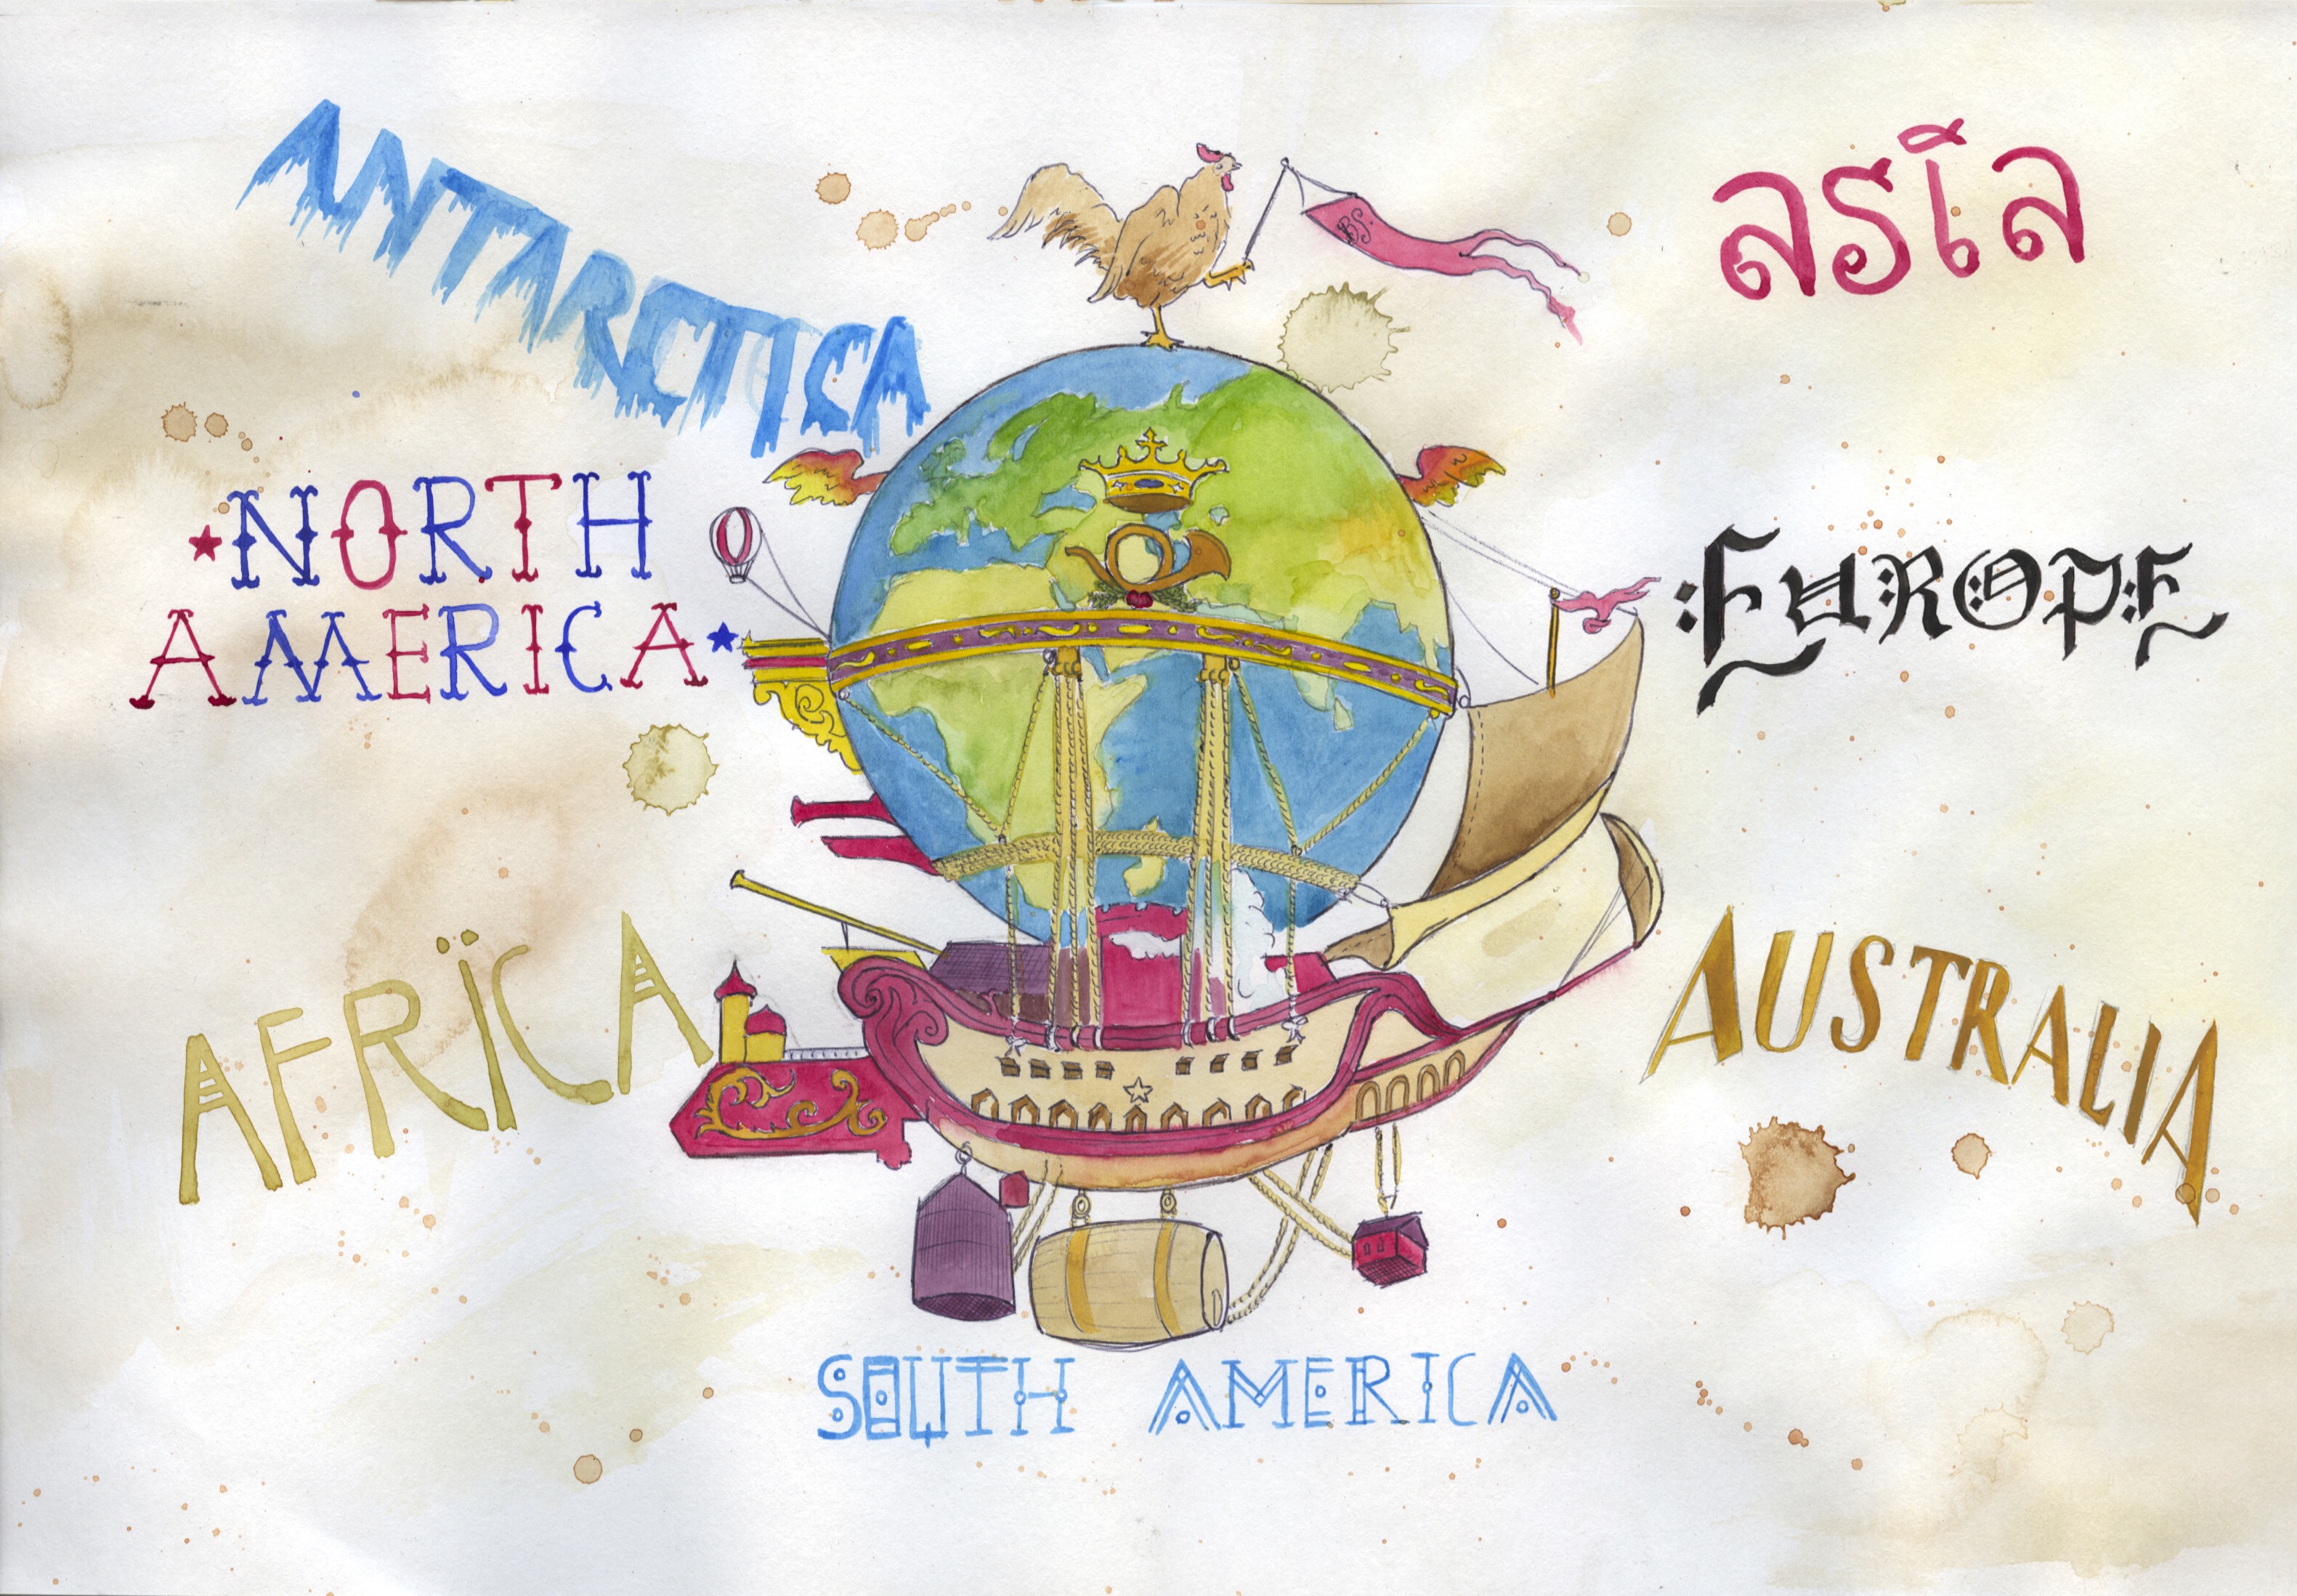 ANTARCTICA
asia
B.S.
NORTH
AMERICA
EUROPE
AFRÏCA
AUSTRALIA
SOUTH AMERICA